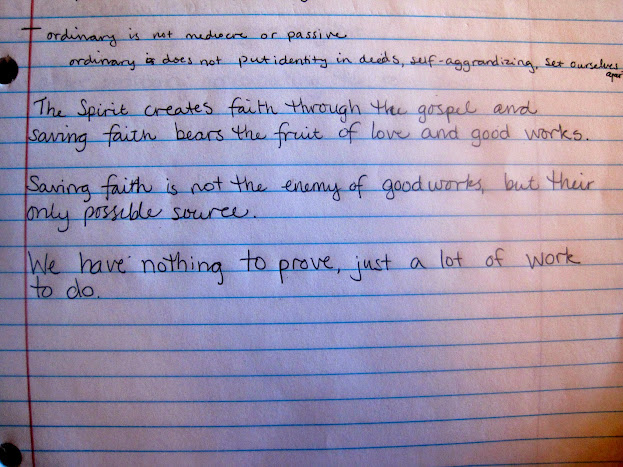 — ordinary is not mediocre or passive
ordinary does not put identity in deeds, self-aggrandizing, set ourselves
apart
The Spirit creates faith through the gospel and
saving faith bears the fruit of love and good works.
Saving faith is not the enemy of good works, but their
only possible source.
We have nothing to prove, just a lot of work
to do.